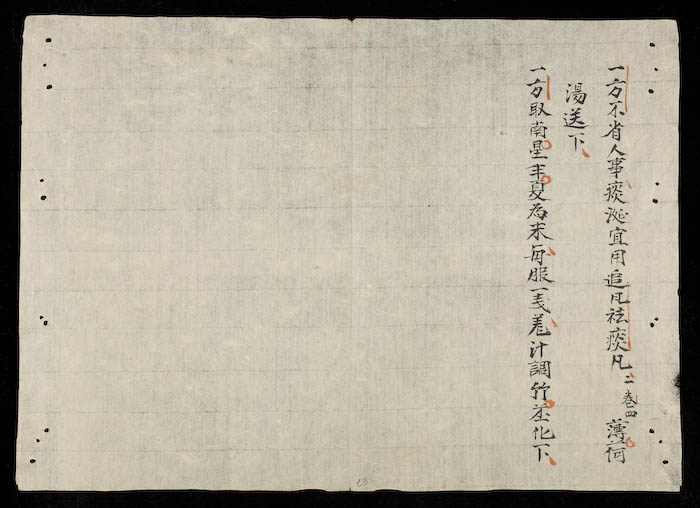 一方不省人事痰涎宜用追凡祛痰凡二卷四薄何
湯送下
一方取南星半夏為末每服一戋姜汁調竹茹化下